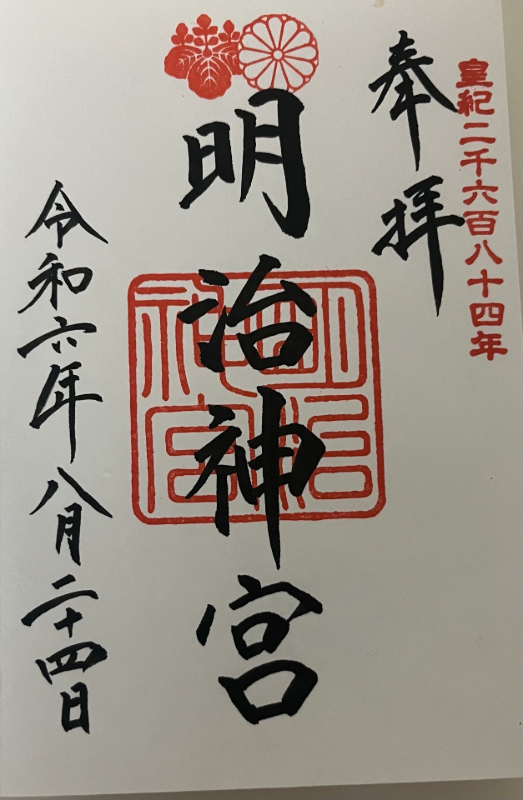 皇紀二千六百八十四年
奉拝
明治神宮
明治神宮
令和六年八月二十四日